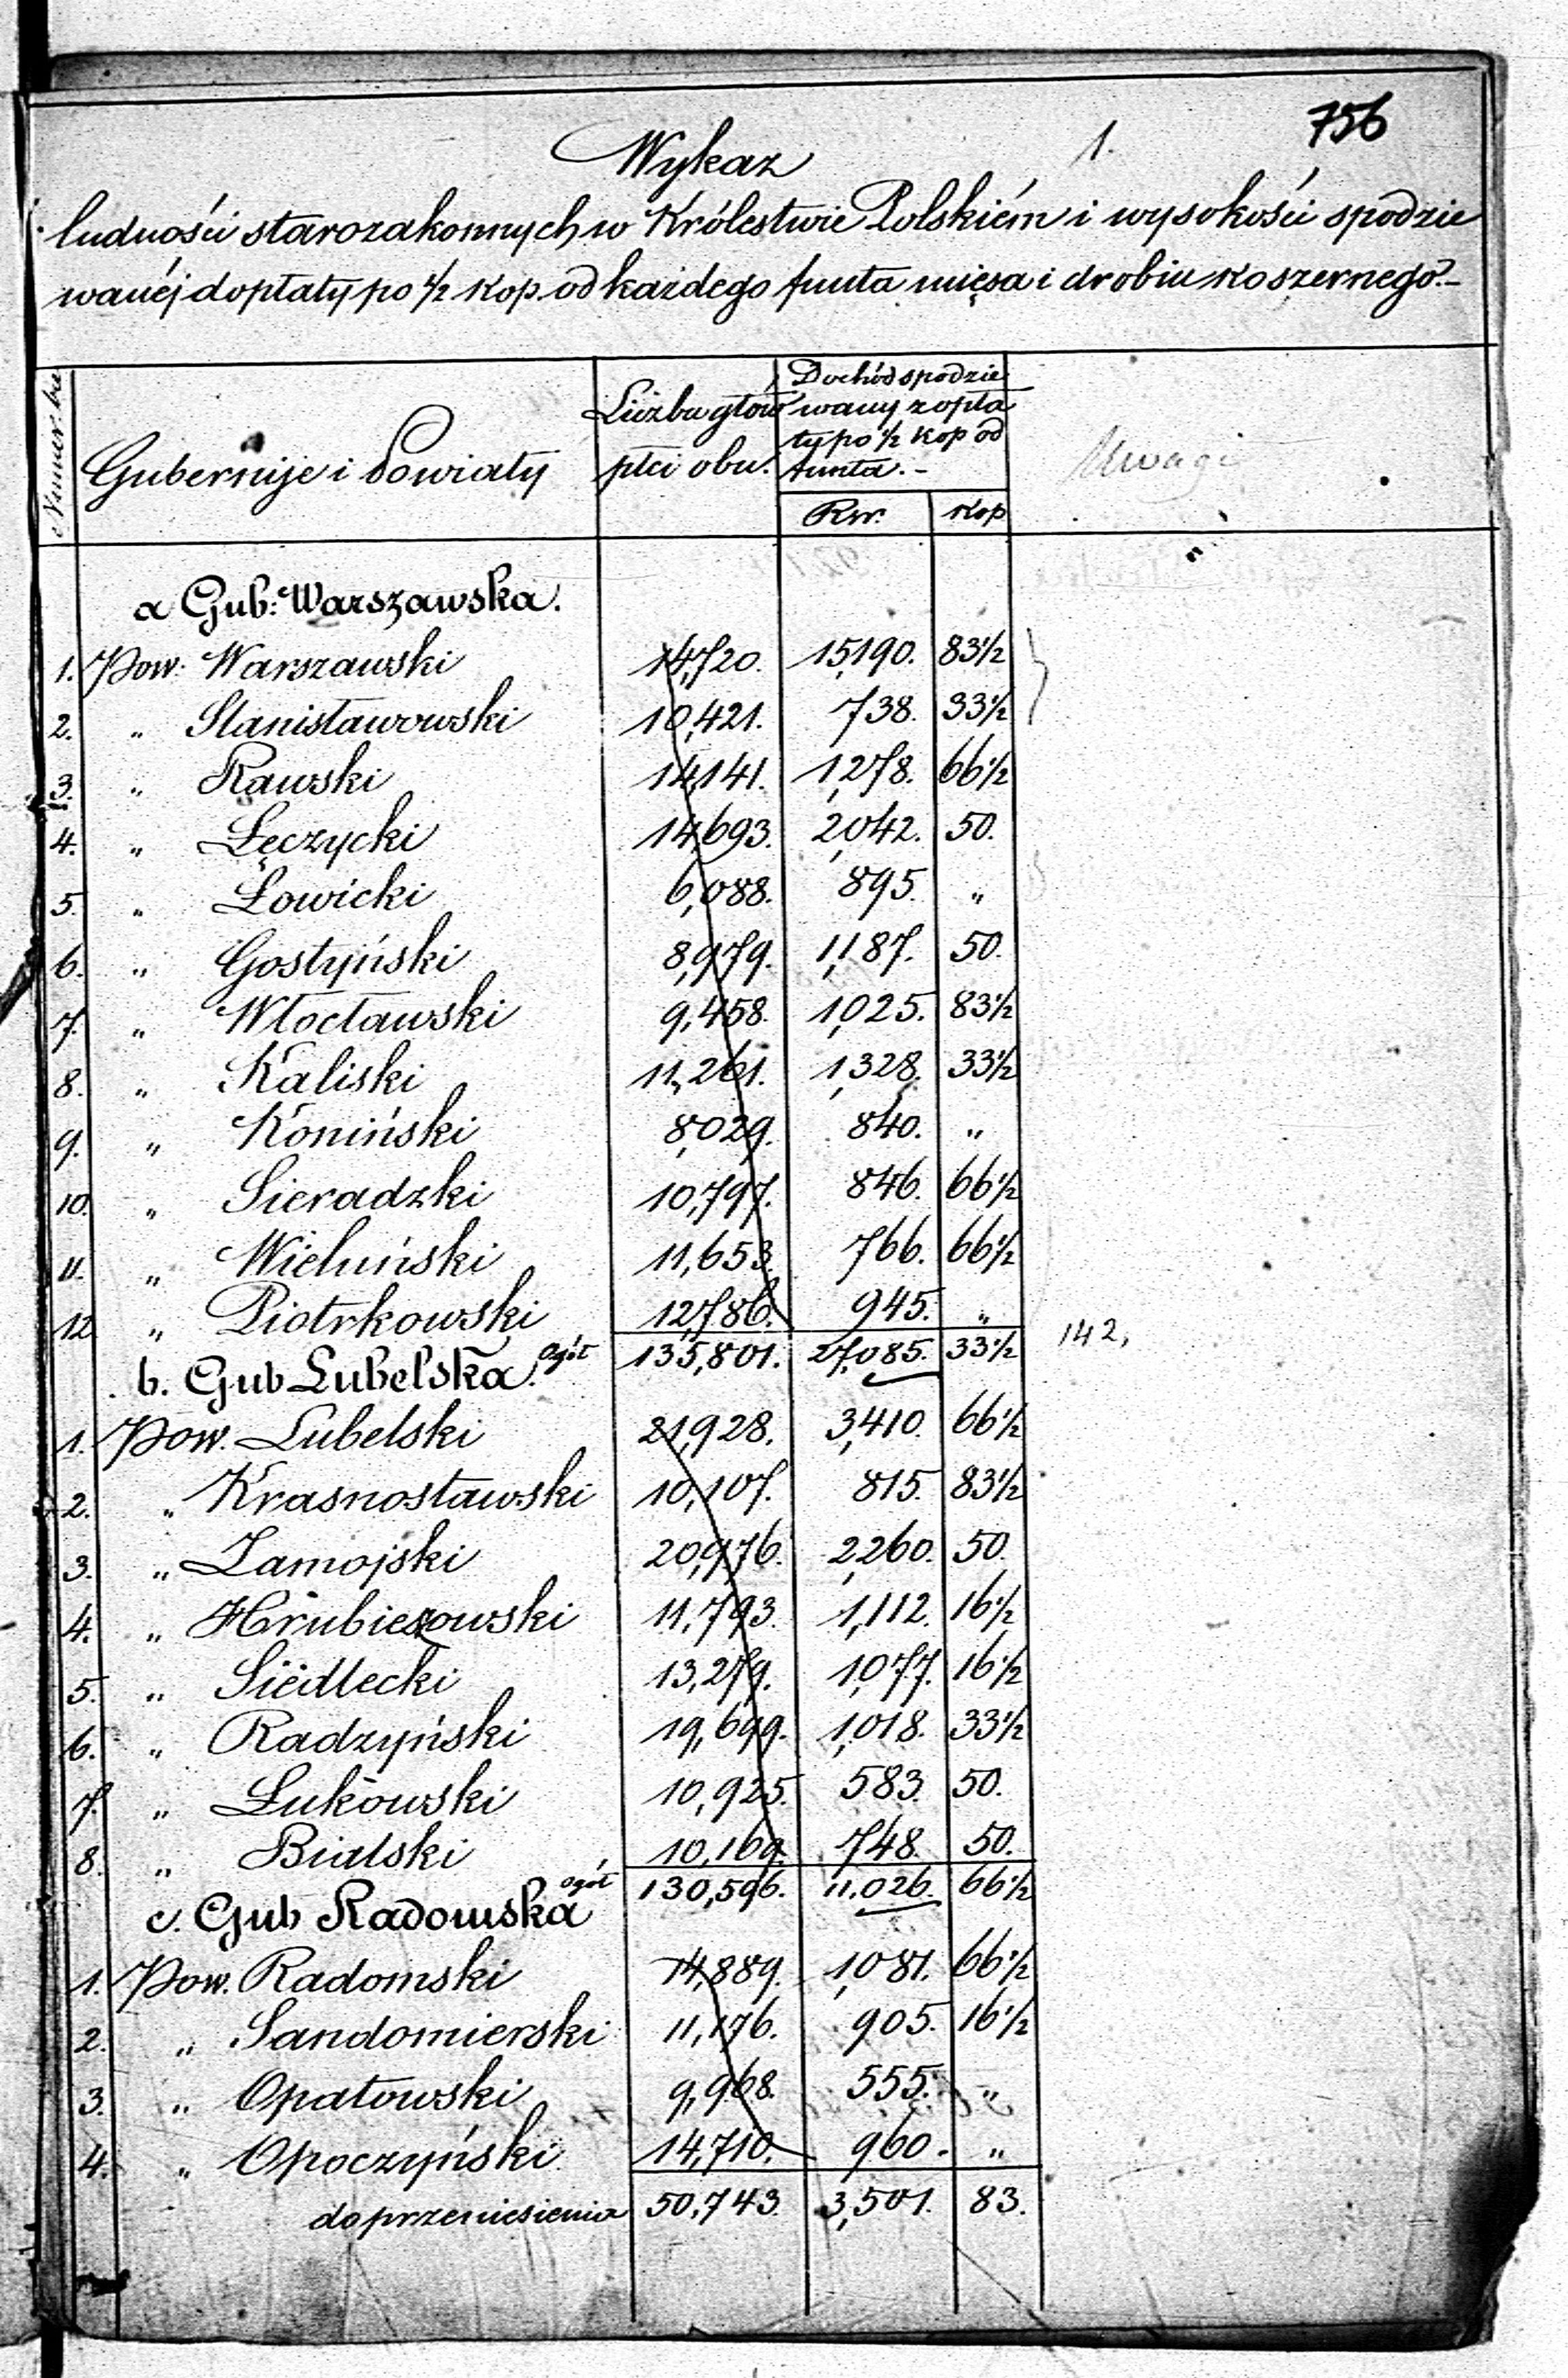 756
1.
Wykaz
ludności starozakonnych w Królestwie Polskiém i wysokości spodzie
wanéj dopłaty po 1/2 kop od każdego funta mięsa i drobiu koszernego.-
Numer. ka
Gubernije i Powiaty
Liczba głów
płci obu.
Dochód spodzie
wany z opła
ty po 1/2 kop od
funta.-
Rsr. kop
Uwagi
a Gub: Warszawska.
1. Pow: Warszawski 14,720. 15,190. 83 1/2
2. „ Stanisławowski 10,421. 738. 33 1/2
3. „ Rawski 14,141. 1,278. 66 1/2
4. „ Łęczycki 14,693. 2,042. 50.
5. „ Łowicki 6,088. 895. „
6. „ Gostyński 8,979. 1,187. 50.
7. „ Włocławski 9,458. 1,025. 83 1/2
8. „ Kaliski 11,261. 1,328. 33 1/2
9. „ Koniński 8,029. 840. „
10. „ Sieradzki 10,797. 846. 66 1/2
11. „ Wieluński 11,653. 766. 66 1/2
12. „ Piotrkowski 12,786. 945. „
ogół 135,801. 27,085. 33 1/2 142,
b. Gub Lubelska.
1. Pow. Lubelski 21,928. 3,410. 66 1/2
2. „ Krasnostawski 10,107. 815. 83 1/2
3. „ Zamojski 20,976. 2,260. 50.
4. „ Hrubieszowski 11,793. 1,112. 16 1/2
5. „ Siedlecki 13,279. 1,077. 16 1/2
6. „ Radzyński 19,699. 1,018. 33 1/2
7. „ Łukowski 10,925. 583. 50.
8. „ Bialski 10,169. 748. 50.
ogół 130,596. 11,026. 66 1/2
c. Gub Radomska
1. Pow. Radomski 14,889. 1,081. 66 1/2
2. „ Sandomierski 11,176. 905. 16 1/2
3. „ Opatowski 9,968. 555. „
4. „ Opoczyński 14,710. 960. „
do przeniesienia 50,743. 3,501. 83.